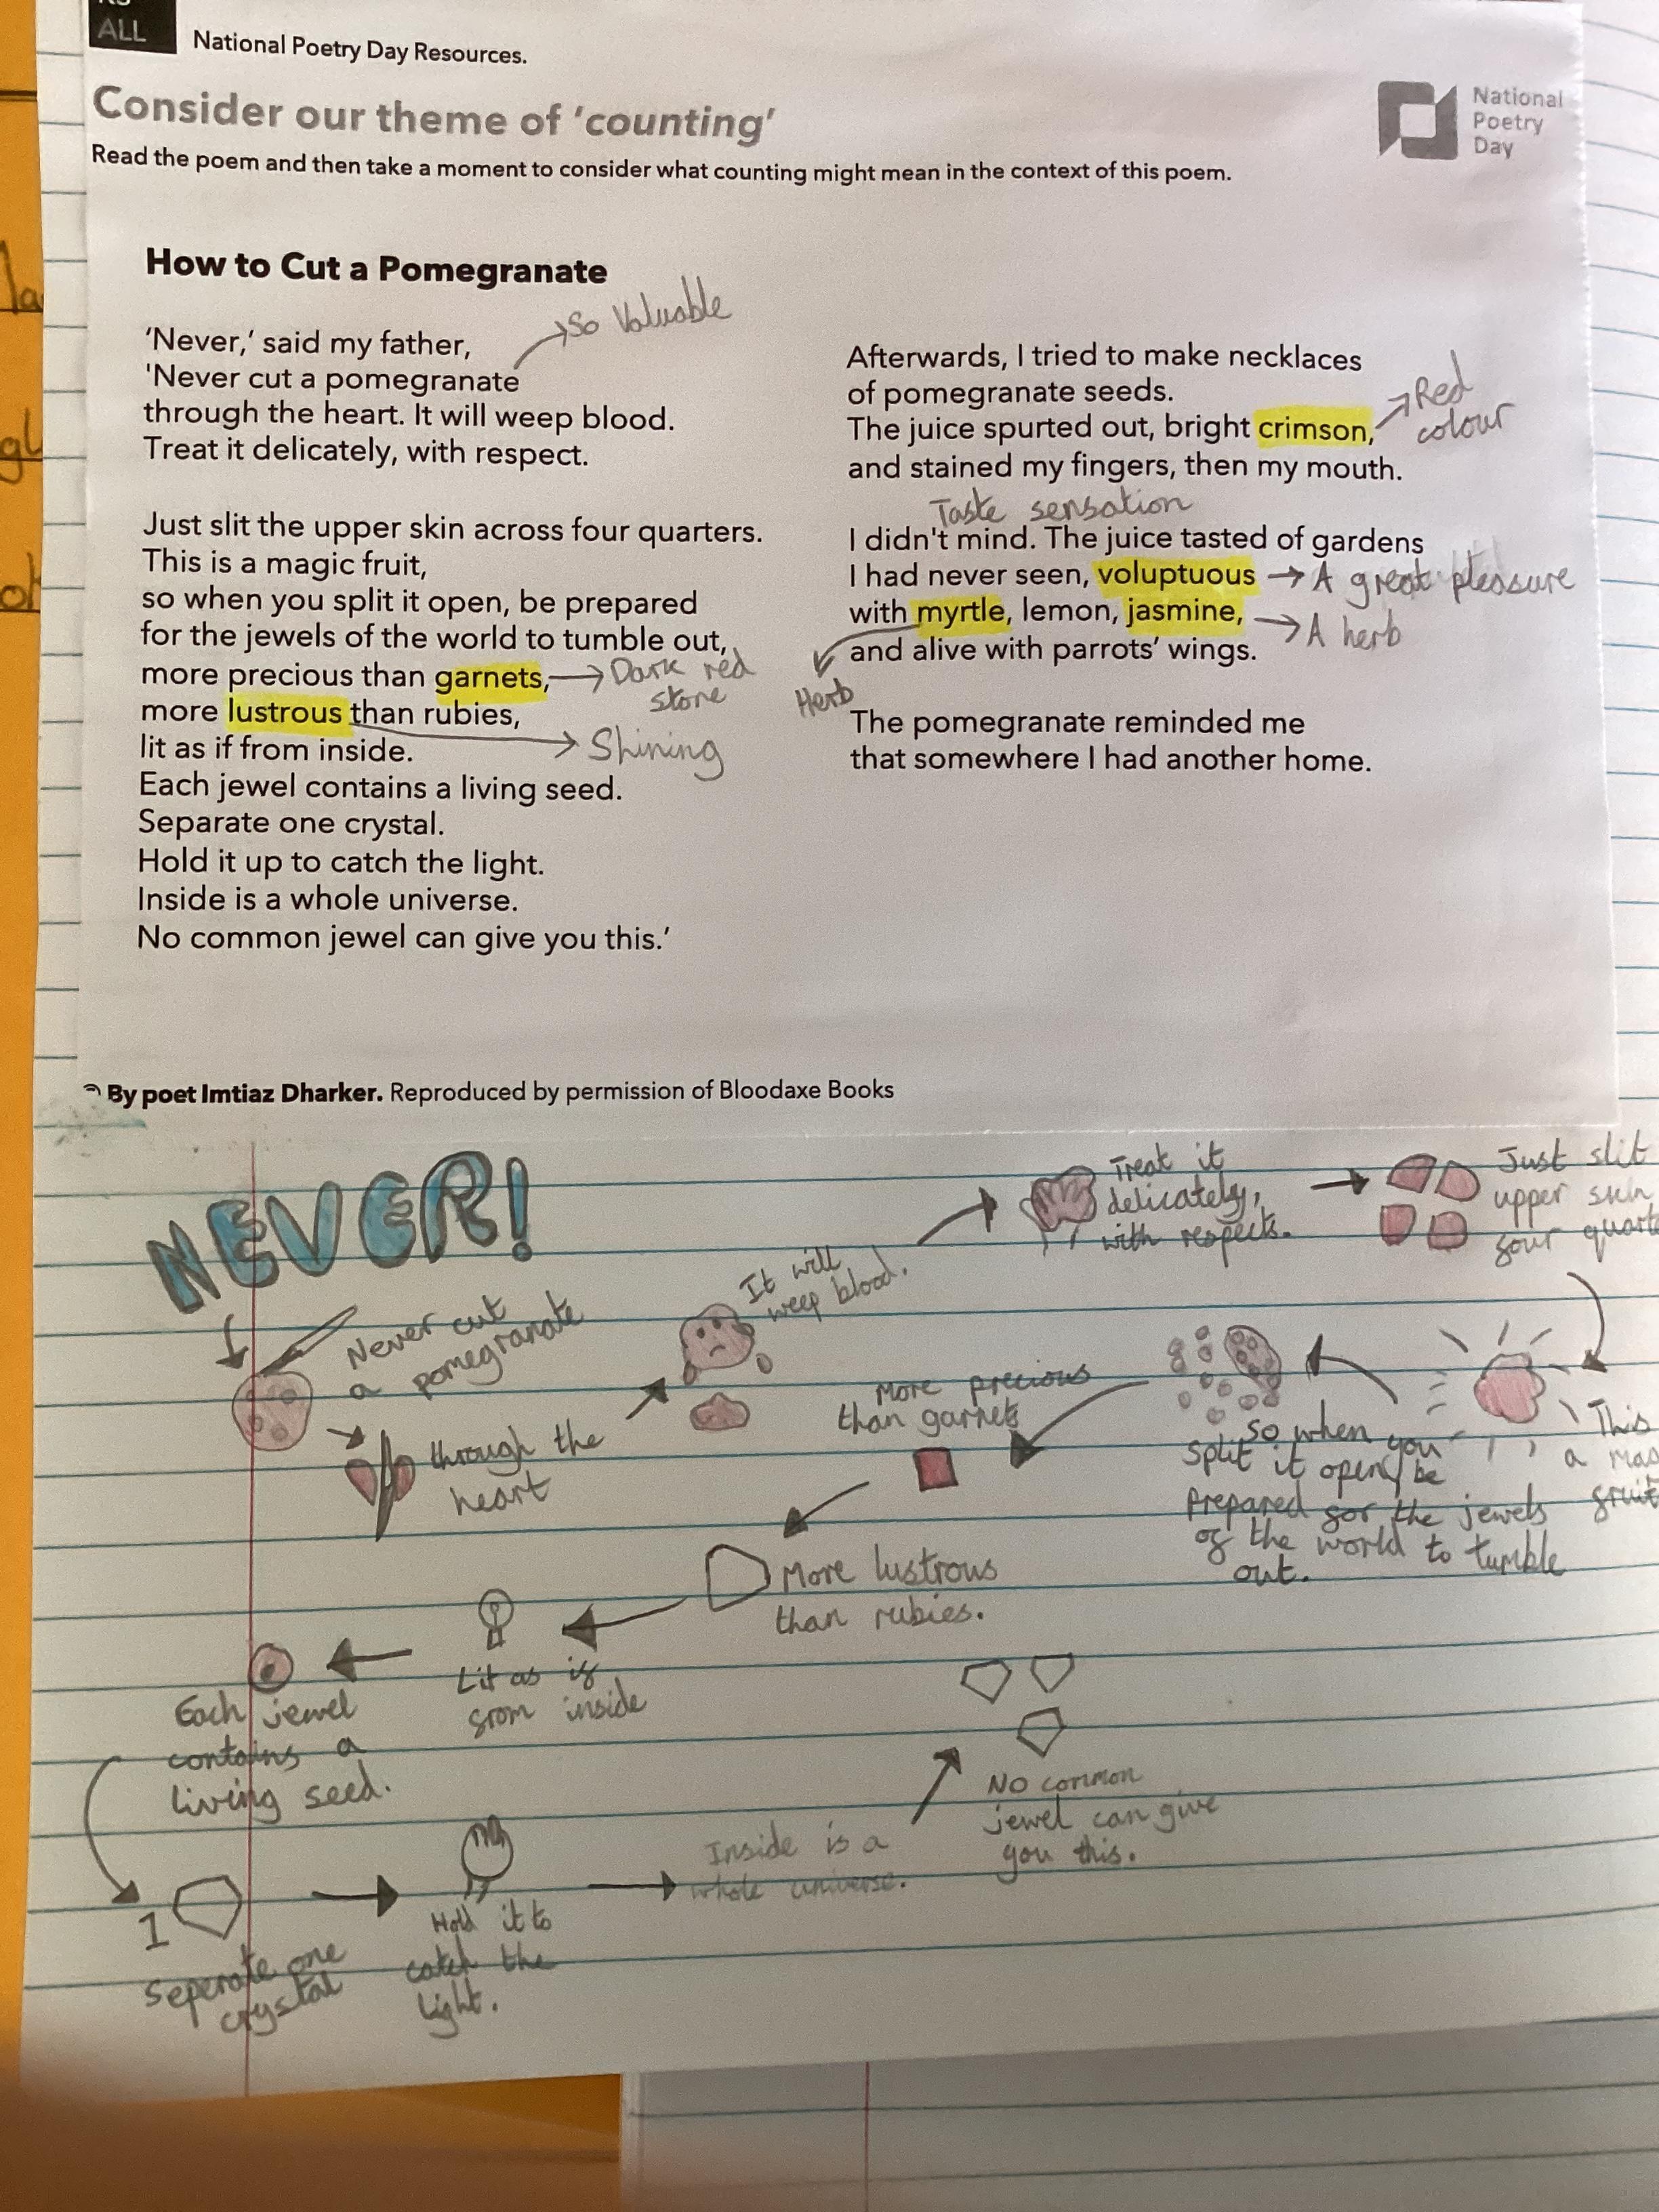 ALL
National Poetry Day Resources.
Consider our theme of 'counting'
Read the poem and then take a moment to consider what counting might mean in the context of this poem.
National
Poetry
Day
How to Cut a Pomegranate
So Valuable
'Never,' said my father,
'Never cut a pomegranate
through the heart. It will weep blood.
Treat it delicately, with respect.
Just slit the upper skin across four quarters.
This is a magic fruit,
so when you split it open, be prepared
for the jewels of the world to tumble out,
more precious than garnets,
Dark red
stone
more lustrous than rubies,
Shining
lit as if from inside.
Each jewel contains a living seed.
Separate one crystal.
Hold it up to catch the light.
Inside is a whole universe.
No common jewel can give you this.'
Afterwards, I tried to make necklaces
of pomegranate seeds.
The juice spurted out, bright crimson,
Red
colour
and stained my fingers, then my mouth.
Taste sensation
I didn't mind. The juice tasted of gardens
I had never seen, voluptuous
A great pleasure
with myrtle, lemon, jasmine,
A herb
Herb
and alive with parrots' wings.
The pomegranate reminded me
that somewhere I had another home.
By poet Imtiaz Dharker. Reproduced by permission of Bloodaxe Books
NEVER!
Never cut
a pomegranate
through the
heart
It will
weep blood.
Treat it
delicately,
with respects.
Just slit
upper skin
four
This
a
so when you
split it open, be
prepared for the jewels
of the world to tumble
out.
More precious
than garnets
More lustrous
than rubies.
Lit as if
from inside
Each jewel
contains a
living seed.
1
Seperate one
crystal
Hold it to
catch the
light.
Inside is a
whole universe.
No common
jewel can give
you this.